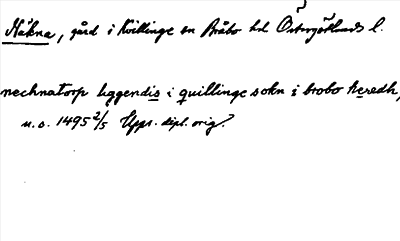 Näkna, gård i Kvillinge sn Bråbo hd Östergötlands l.
nechnatorp liggendis i quillinge sokn i brobo heredh,
u.o. 1495 2/5 Upps. dipl. orig.